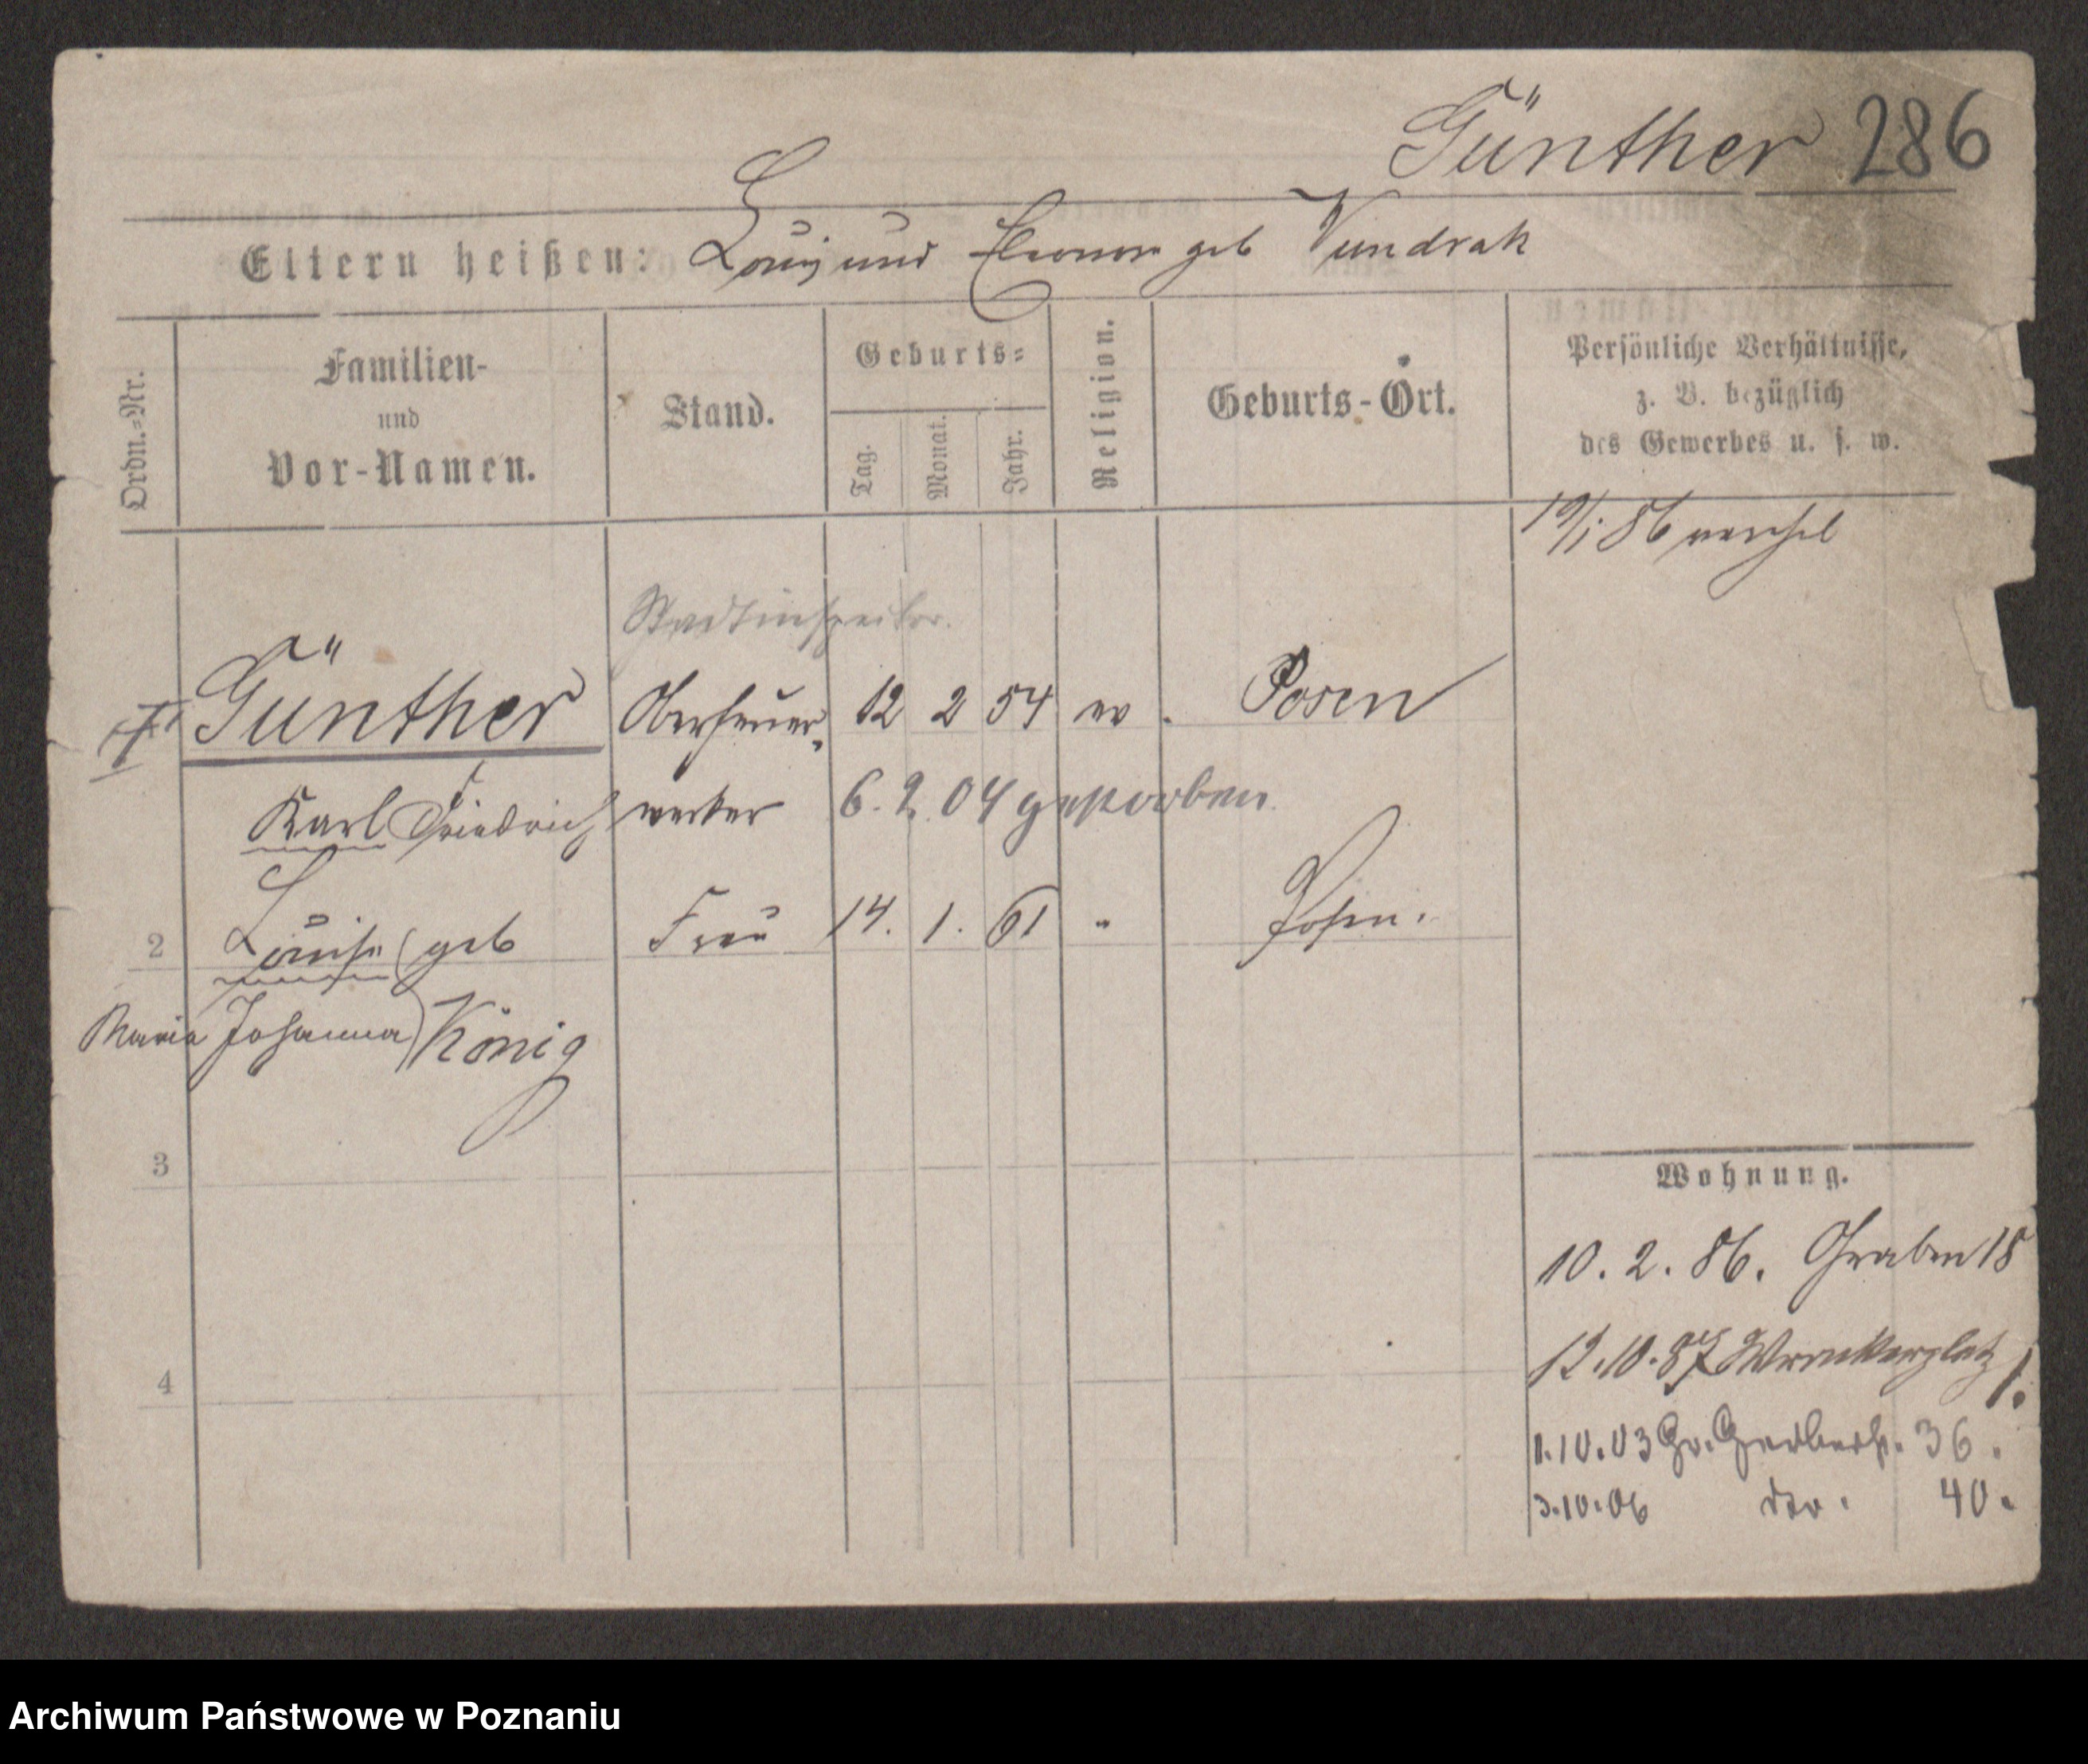 Günther 286
Eltern heißen: Louis und Eleonore geb Vundrak
Ordn.-Nr.
Familien-
und
Vor-Namen.
Stand.
Geburts-
Tag.
Monat.
Jahr.
Religion.
Geburts-Ort.
Persönliche Verhältnisse,
z. B. bezüglich
des Gewerbes u. s. w.
19/1 86
Stadtinspektor.
Günther Oberfeuer- 12 2 54 ev. Posen
Karl Friedrich werker 6. 2. 04 gestorben.
2 Louise (geb Frau 14. 1. 61 " Posen.
Maria Johanna) König
3
4
Wohnung.
10. 2. 86. Graben 18
12.10.87 Wronkerplatz 1.
1.10.03 Gr. Gerberst. 36.
3.10.06 do. 40.
Archiwum Państwowe w Poznaniu